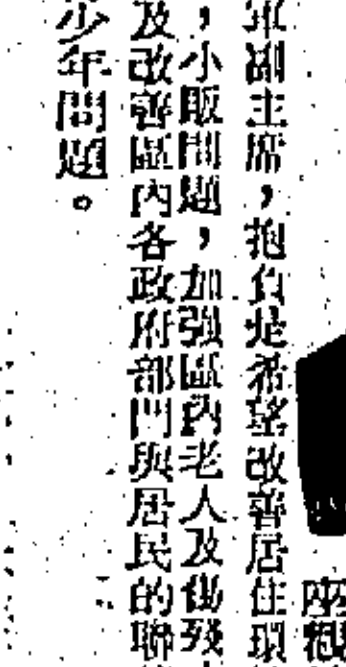 座
軍副主席，抱負是希望改善居住環
，小販問題，加強區內老人及傷殘
及改善區內各政府部門與居民的聯
少年問題。